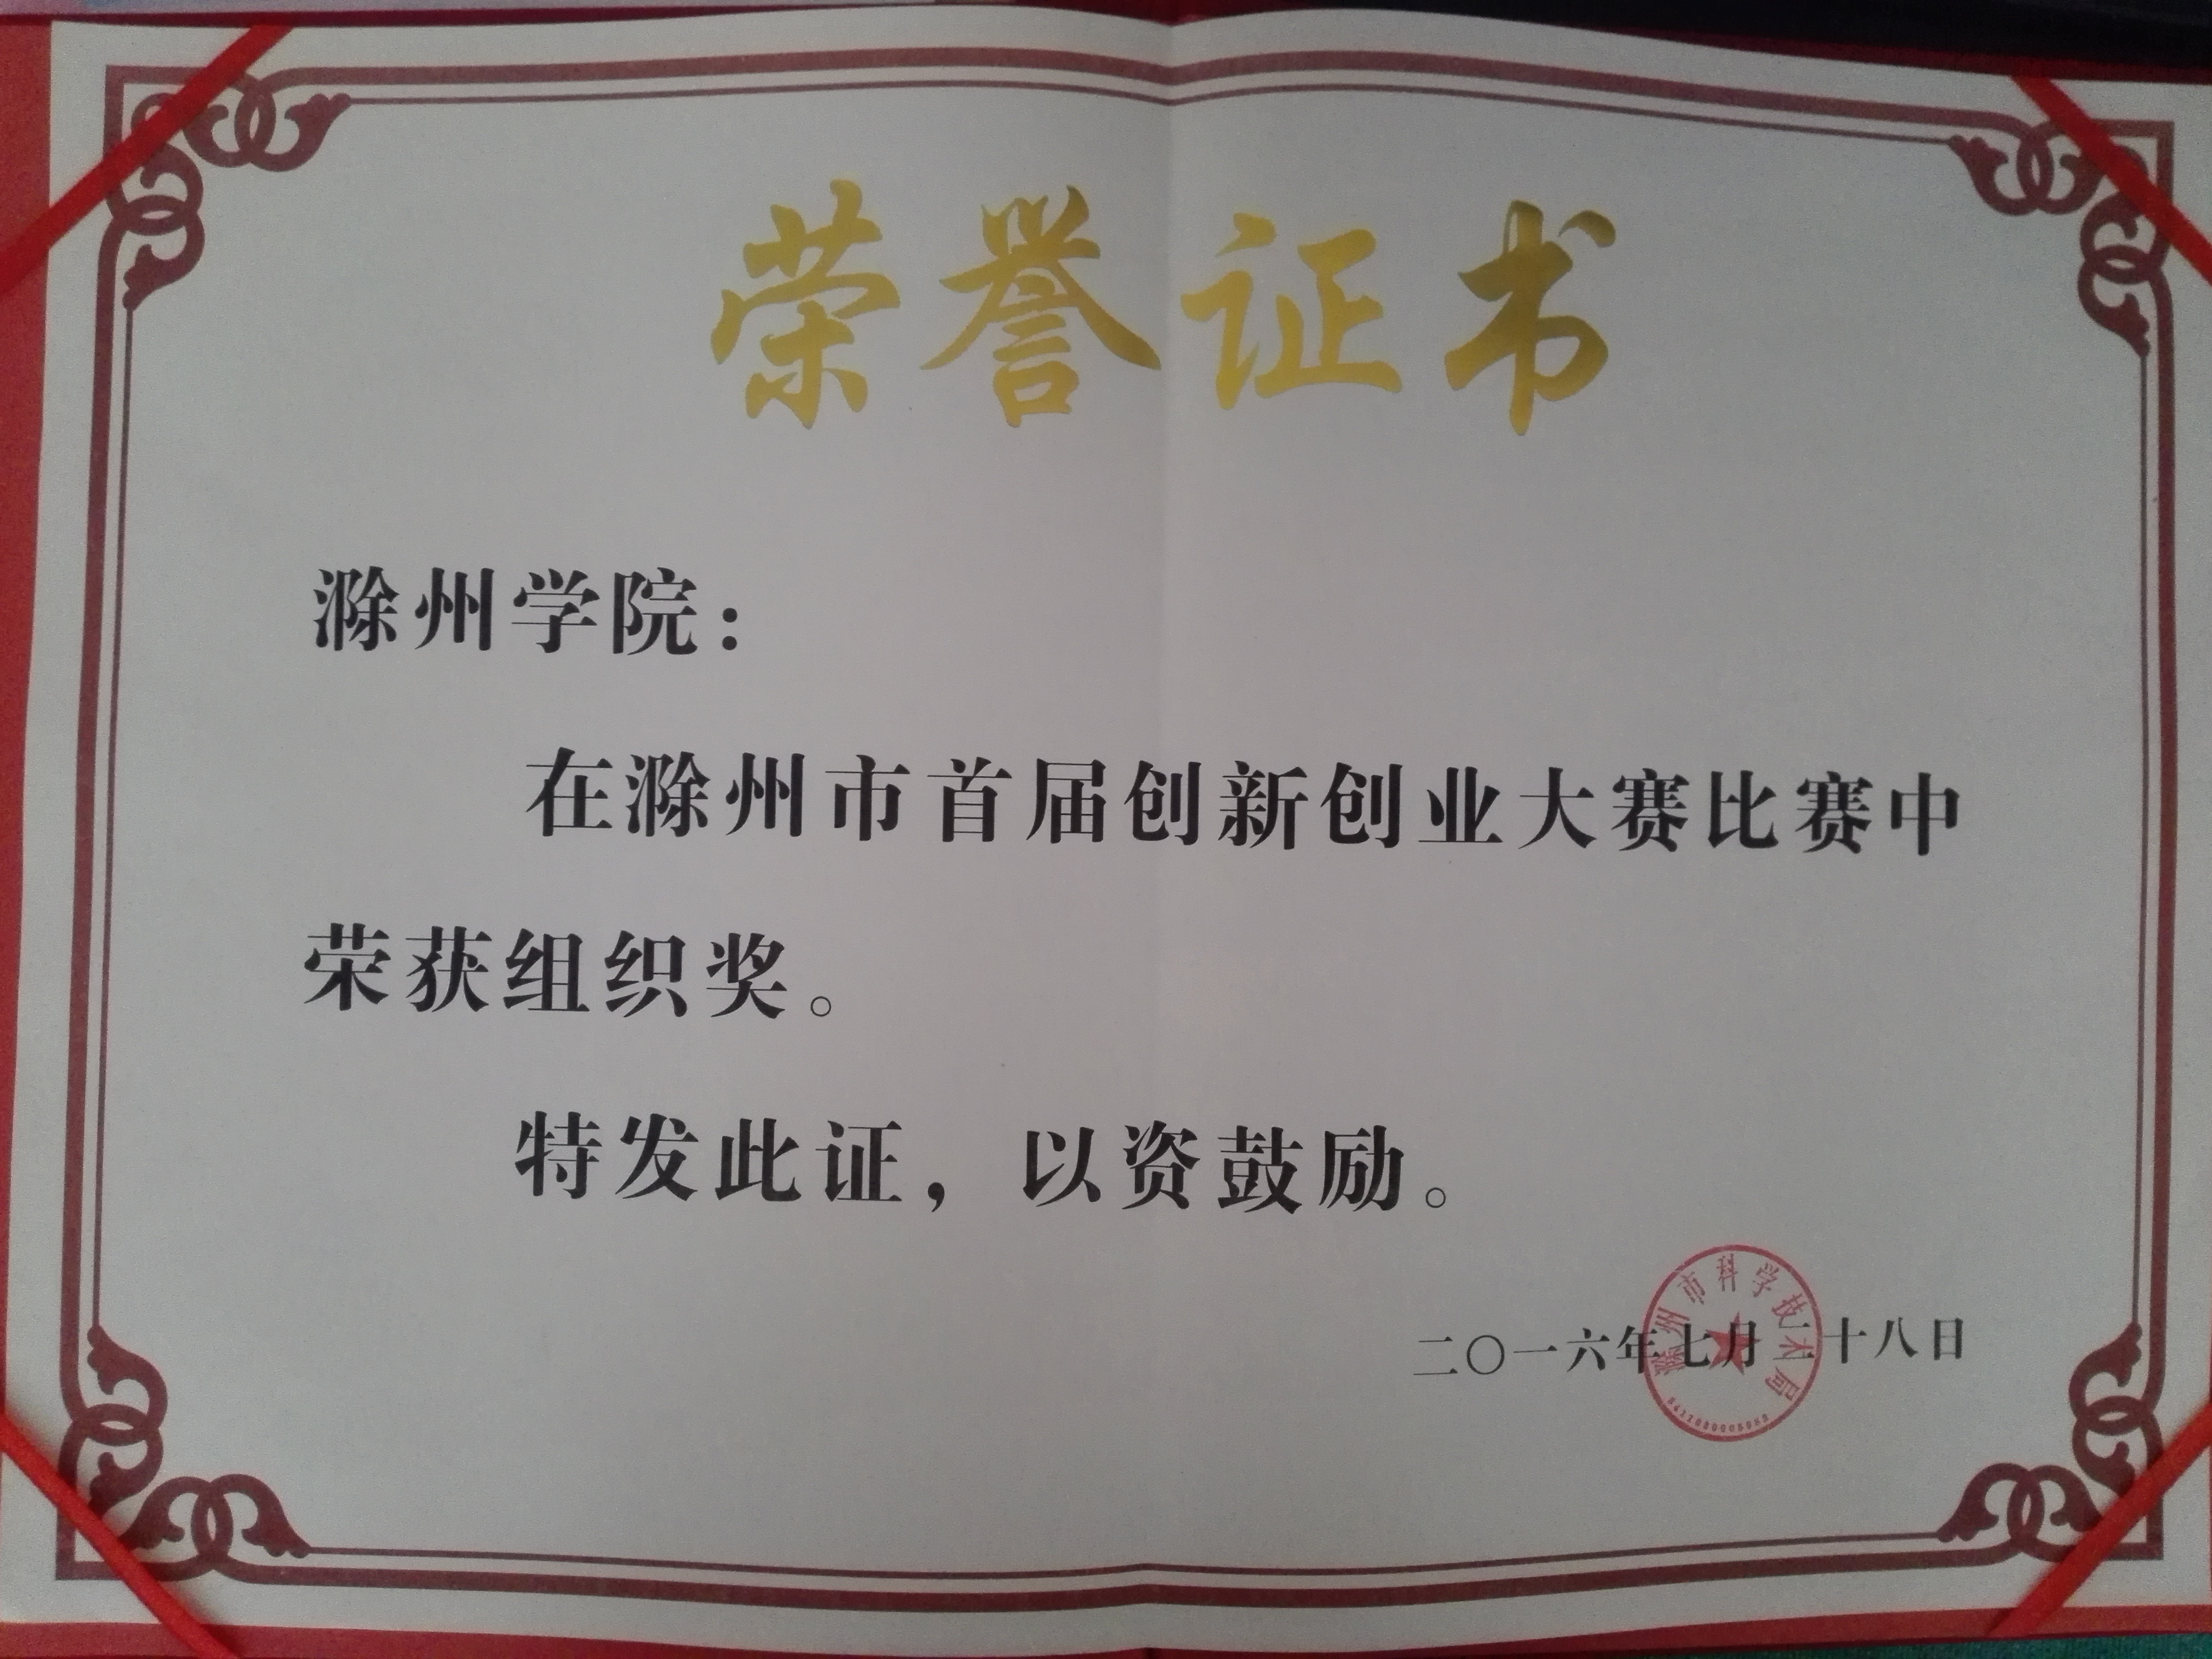 荣誉证书
滁州学院：
在滁州市首届创新创业大赛比赛中
荣获组织奖。
特发此证，以资鼓励。
滁州市科学技术局
二〇一六年七月二十八日